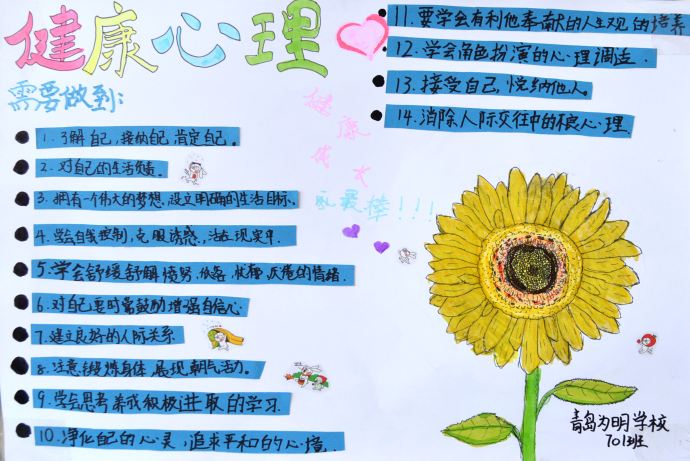 健康心理
需要做到:
1.了解自己,接纳自己,肯定自己。
2.对自己的生活负责。
3.拥有一个伟大的梦想,设立明确的生活目标。
4.学会自我控制,克服诱惑,活在现实中.
5.学会舒缓舒解愤努.依靠.忧郁.厌倦的情绪.
6.对自己要时常鼓励增强自信心
7.建立良好的人际关系
8.注意锻炼身体,展现朝气活力。
9.学会思考养成积极进取的学习.
10.净化自己的心灵,追求平和的心境.
11.要学会有利他奉献的人生观的培养
12.学会角色扮演的心理调适.
13.接受自己,悦纳他人。
14.消除人际交往中的不良心理.
健康
成长
我最棒!!!
青岛为明学校
701班